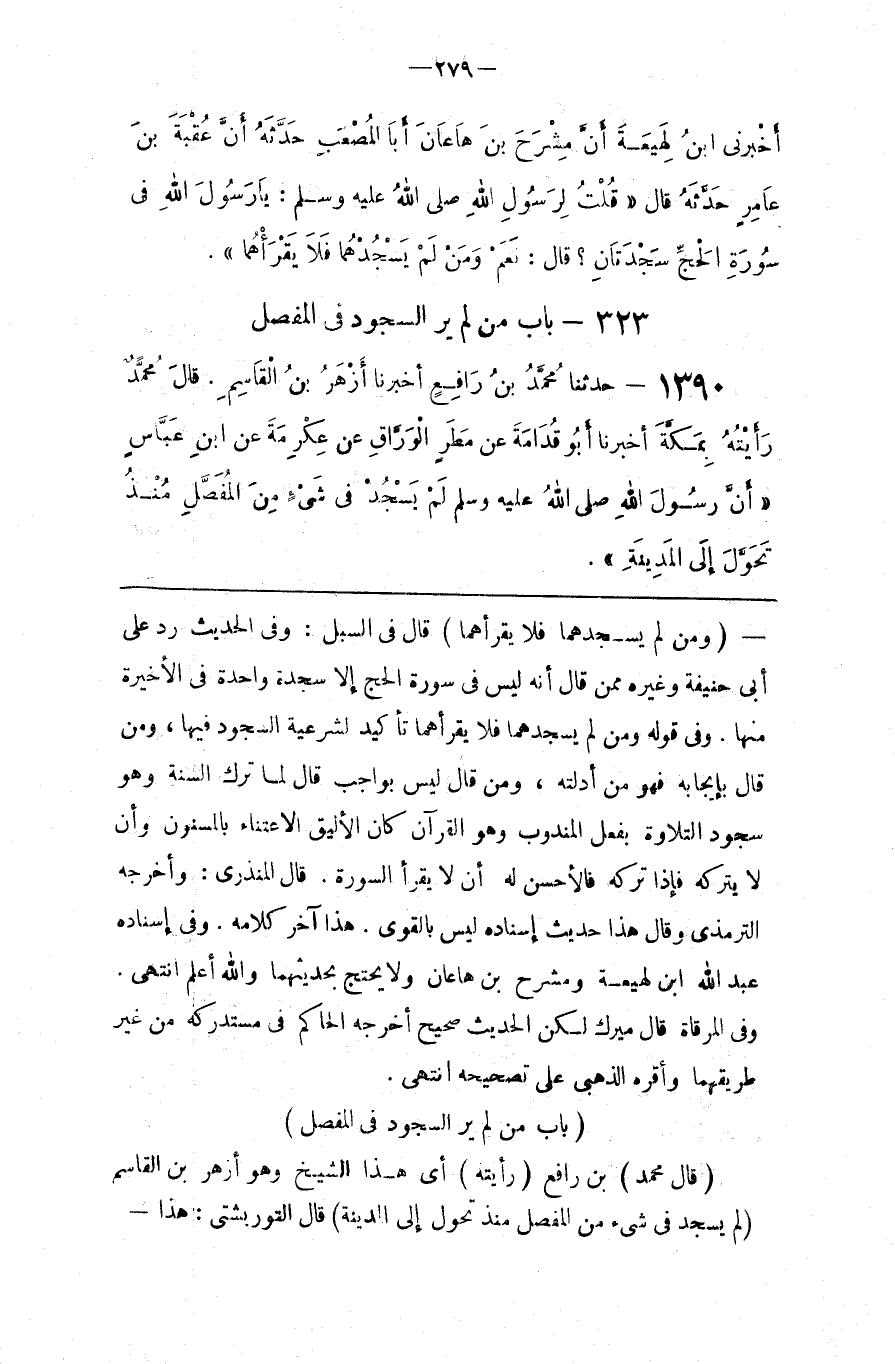 — ٢٧٩ —
أَخْبرنى ابنُ لَهِيعَـةَ أَنَّ مِشْرَحَ بنَ هَاعَانَ أَبَا الْمُصْعَبِ حَدَّثَهُ أَنَّ عُقْبَةَ بنَ
عَامِرٍ حَدَّثَهُ قال « قُلْتُ لِرَسُولِ اللهِ صلى اللهُ عليه وسـلم : يَارَسُولَ اللهِ فى
سُورَةِ الْحَجِّ سَجْدَتَانِ ؟ قال : نَعَمْ وَمَنْ لَمْ يَسْجُدْهُمَا فَلَا يَقْرَأْهُمَا » .
٣٢٣ – باب من لم ير السجود فى المفصل
١٣٩٠ – حدثنا مُحمَّدُ بنُ رَافِـعٍ أخبرنا أَزْهَرُ بنُ الْقَاسِمِ . قالَ مُحمَّدٌ
رَأَيْتُهُ بِمَـكَّةَ أخبرنا أَبُو قُدَامَةَ عن مَطَرٍ الْوَرَّاقِ عن عِكْرِمَةَ عن ابنِ عَبَّاسٍ
« أَنَّ رسُـولَ اللهِ صلى اللهُ عليه وسلم لَمْ يَسْجُدْ فى شَىْءٍ مِنَ الْمُفَصَّلِ مُنْـذُ
تَحَوَّلَ إِلَى الْمَدِينَةِ » .
— ( ومن لم يسـجدهما فلا يقرأهما ) قال فى السبل : وفى الحديث رد على
أبى حنيفة وغيره ممن قال أنه ليس فى سورة الحج إلا سجدة واحدة فى الأخيرة
منها . وفى قوله ومن لم يسجدهما فلا يقرأهما تأكيد لشرعية السجود فيها ، ومن
قال بإيجابه فهو من أدلته ، ومن قال ليس بواجب قال لمـا ترك السنة وهو
سجود التلاوة بفعل المندوب وهو القرآن كان الأليق الاعتناء بالمسنون وأن
لا يتركه فإذا تركه فالأحسن له أن لا يقرأ السورة . قال المنذرى : وأخرجه
الترمذى وقال هذا حديث إسناده ليس بالقوى . هذا آخر كلامه . وفى إسناده
عبد الله ابن لهيعـة ومشرح بن هاعان ولا يحتج بحديثهما والله أعلم انتهى .
وفى المرقاة قال ميرك لـكن الحديث صحيح أخرجه الحاكم فى مستدركه من غير
طريقهما وأقره الذهبى على تصحيحه انتهى .
( باب من لم ير السجود فى المفصل )
( قال محمد ) بن رافع ( رأيته ) أى هـذا الشيخ وهو أزهر بن القاسم
(لم يسجد فى شىء من المفصل منذ تحول إلى المدينة) قال التوربشتى : هذا —